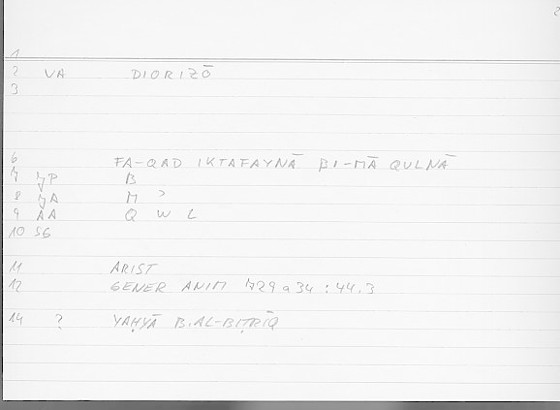 1
2 VA DIORIZŌ
3
6 FA-QAD IKTAFAYNĀ BI-MĀ QULNĀ
7 ȜP B
8 ȜA M ʾ
9 AA Q W L
10 SG
11 ARIST
12 GENER ANIM 729a34 : 44.3
14 ? YAḤYĀ B.AL-BIṬRĪQ